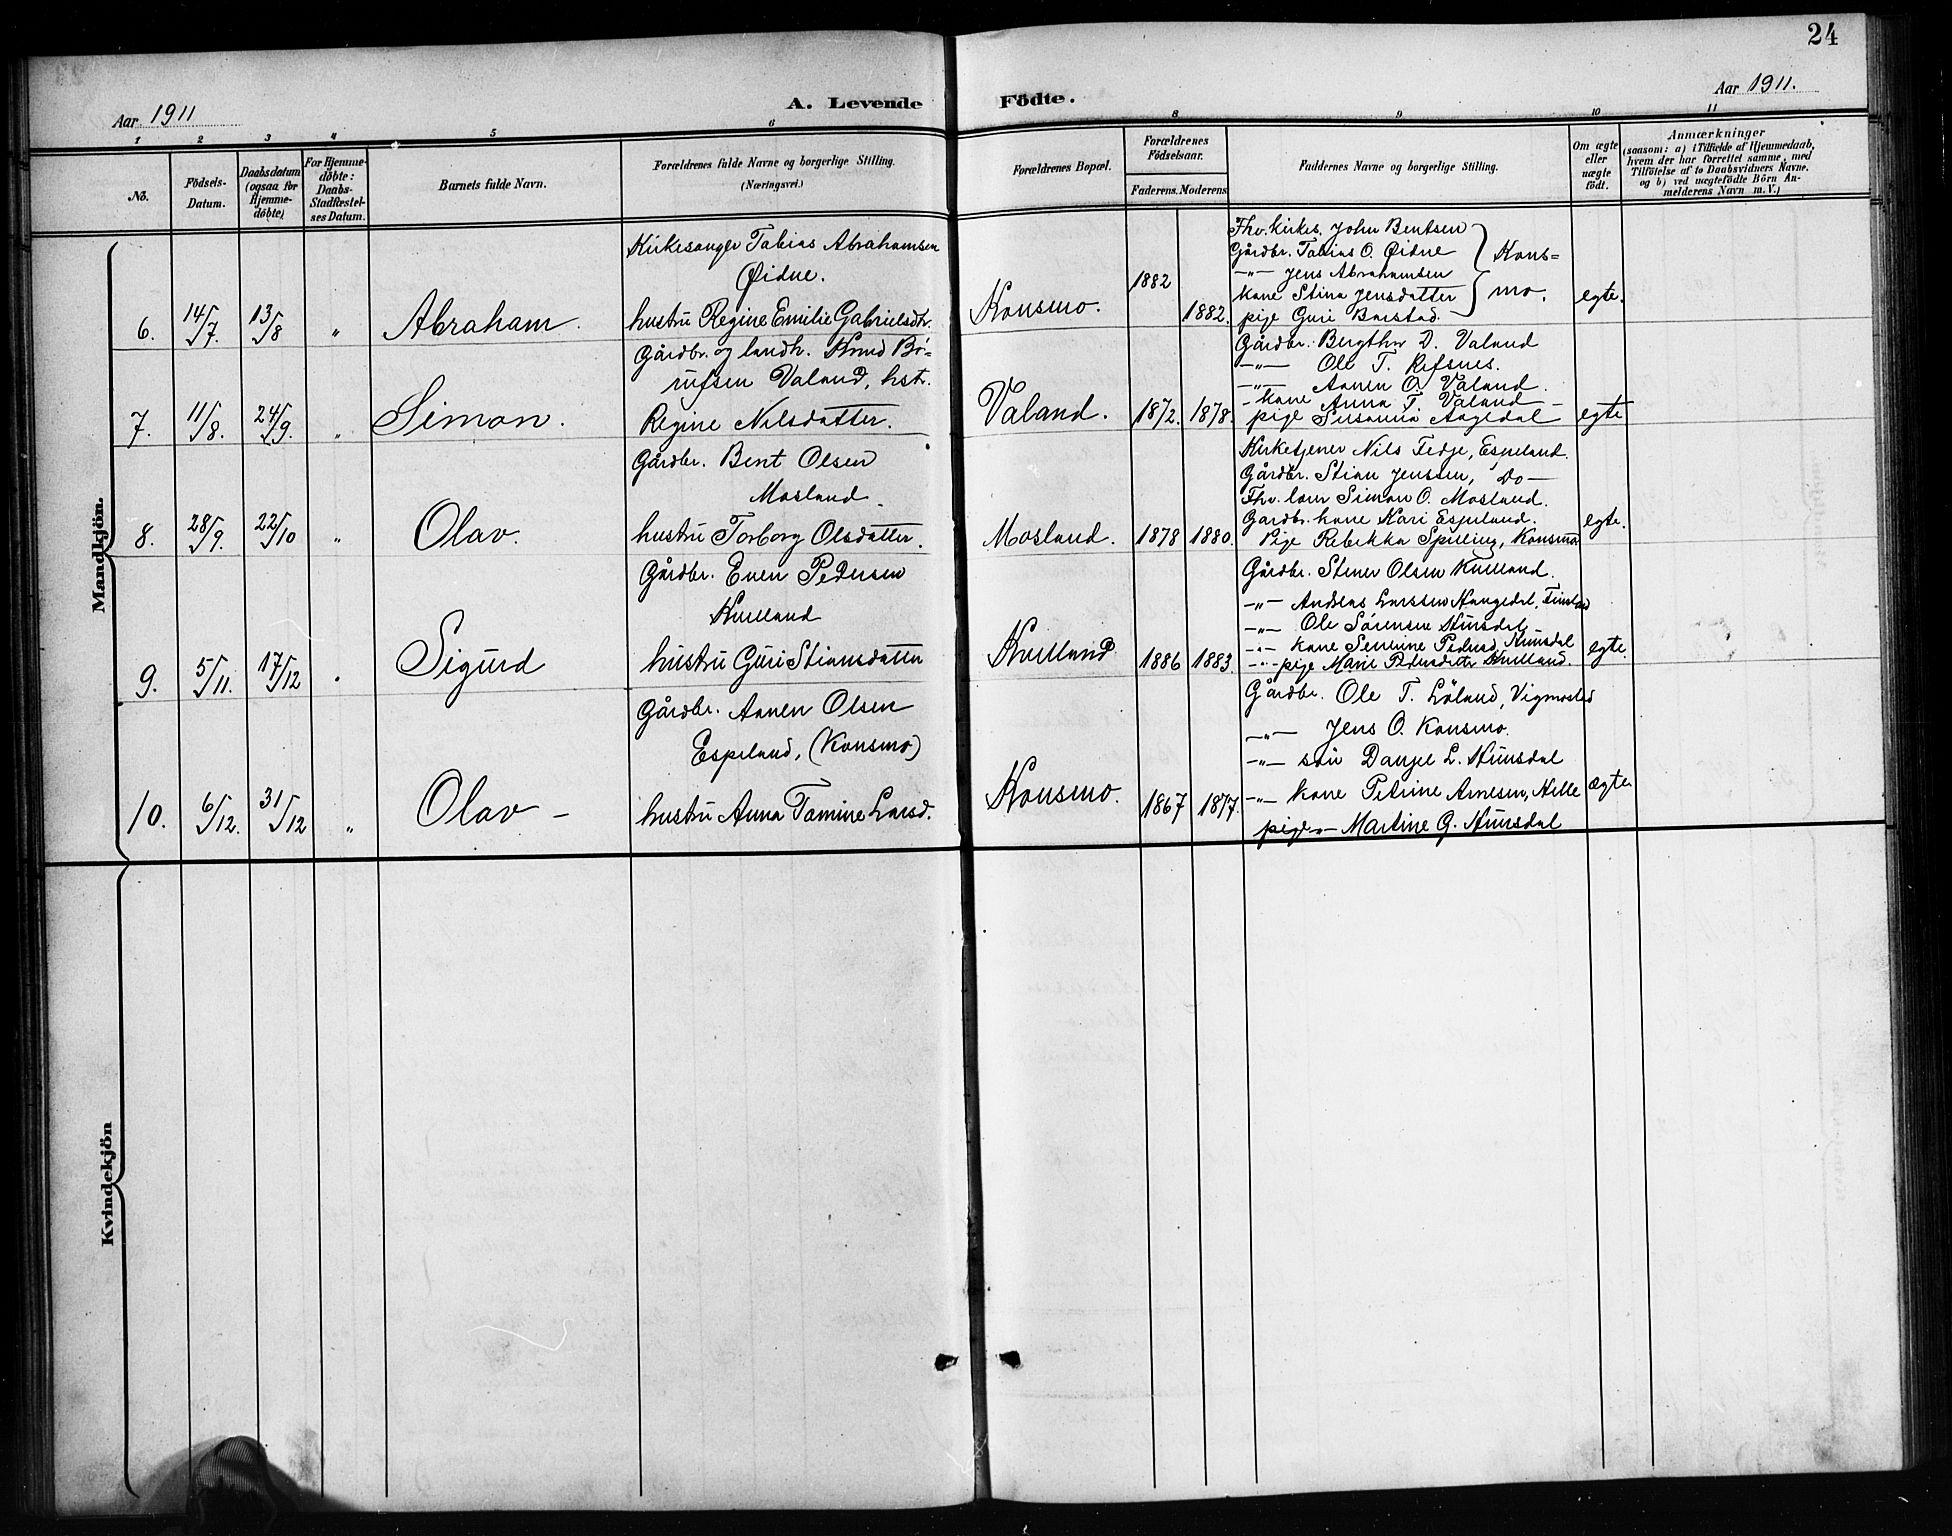 24
Aar 1911
A. Levende Födte.
Aar 1911.
1 2 3 4 5 6 8 9 10 11
No.
Födsels-
Datum.
Daabsdatum
(ogsaa for
Hjemme-
döbte)
For Hjemme-
döbte:
Daabs-
Stadfæstel-
ses Datum.
Barnets fulde Navn.
Forældrenes fulde Navne og borgerlige Stilling.
(Næringsvei.)
Forældrenes Bopæl.
Forældrenes
Födselsaar.
Faderens. Moderens
Faddernes Navne og borgerlige Stilling.
Om ægte
eller
uægte
födt.
Anmærkninger
(saasom: a) i Tilfælde af Hjemmedaab,
hvem der har forrettet samme, med
Tilföielse af to Daabsvidners Navne.
og b) ved uægtefödte Börn An-
melderens Navn m. V.)
Mandkjön.
6.
14/7.
13/8
"
Abraham.
Kirkesanger Tobias Abrahamsen
Øidne.
hustru Regine Emilie Gabrielsdtr.
Konsmo.
1882
1882.
Fhv. kirkes. John Bentsen
Gårdbr. Tobias O. Øidne
-"- Jens Abrahamsen
kone Stina Jensdatter
pige Guri Barstad.
Kons=
mo.
egte.
7.
11/8.
24/9.
"
Simon.
Gårdbr. og landh. Knud Bo-
rufsen Valand, hst.
Regine Nilsdatter.
Valand.
1872.
1878.
Gårdbr. Bergthor D. Valand
-"- Ole T. Refsnes.
-"- Aanen O. Valand.
- kone Anna T. Valand -
pige Susanna Aagedal
egte
8.
28/9.
22/10
"
Olav.
Gårdbr. Bent Olsen
Mosland.
hustru Torborg Olsdatter.
Mosland.
1878
1880.
Kirketjener Nils Tedje, Espeland.
Gårdbr. Stian Jenssen, Do-
Fhv. lom Simon O. Mosland.
Gardbr. kone Kari Espeland.
Pige Rebekka Spilling, Konsmo
egte.
9.
5/11.
17/12
Sigurd
Gårdbr. Even Pedersen
Kvelland
hustru Guri Stiansdatter
Kvelland
1886
1883.
Gårdbr. Stener Olsen Kvelland.
-"- Andreas Larssen Haugedal,
-"- Ole Sørensen Hunsdal
-"- kone Pedersd. Hunsdal
-"- pige Marie Pedersdatter Kvelland.
egte.
10.
6/12.
31/12
"
Olav -
Gårdbr. Aanen Olsen
Espeland, (Konsmo)
hustru Anna Tomine Larsd.
Konsmo.
1867
1877.
Gårdbr. Ole T. Löland, Vigmostad
-"- Jens O. Konsmo.
-"- søn Danjel L. Hunsdal
-"- kone Petrine Arnesen, Helle
pige -"- Martine G. Hunsdal
ægte
Kvindekjön